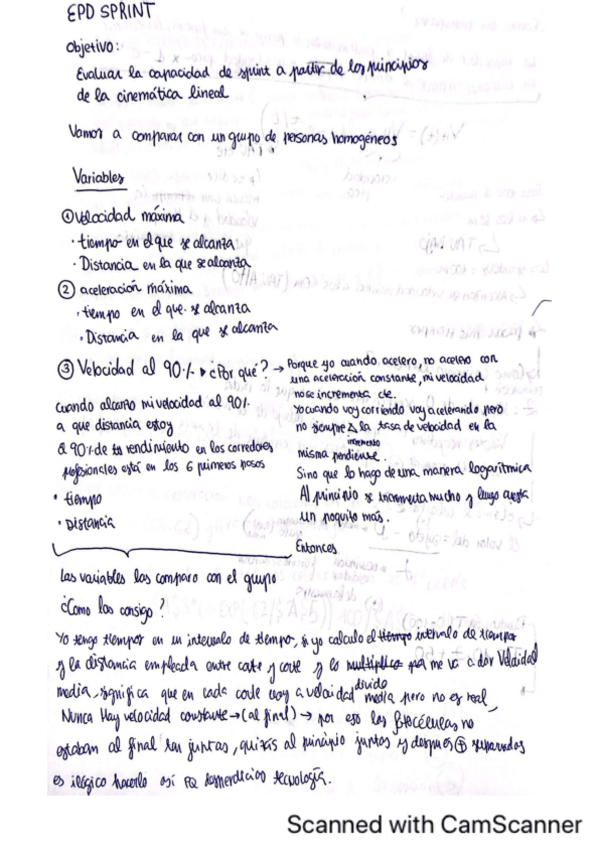 EPD SPRINT
Objetivo:
Evaluar la capacidad de sprint a partir de los principios
de la cinemática lineal
Vamos a comparar con un grupo de personas homogéneos
Variables
① Velocidad máxima
· tiempo en el que se alcanza
· Distancia en la que se alcanza
② aceleración máxima
· tiempo en el que se alcanza
· Distancia en la que se alcanza
③ Velocidad al 90% ▸ ¿Por qué? →
Cuando alcanzo mi velocidad al 90%
a que distancia estoy
El 90% de tu rendimiento en los corredores
profesionales está en los 6 primeros pasos
· tiempo
· Distancia
Porque yo cuando acelero, no acelero con
una aceleración constante, mi velocidad
no se incrementa cte.
Yo cuando voy corriendo voy acelerando pero
no siempre Δ la tasa de velocidad en la
incremento
misma pendiente.
Sino que lo hago de una manera logarítmica
Al principio se incrementa mucho y luego cuesta
un poquito más.
Entonces
Las variables las comparo con el grupo
¿Como las consigo?
Yo tengo tiempos en un intervalo de tiempo, si yo calculo el tiempo intervalo de tiempo
y la distancia empleada entre corte y corte y lo multiplico me va a dar Velocidad
divido
media, significa que en cada corte voy a velocidad media pero no es real,
Nunca Hay velocidad constante → (al final) → por eso las fotocélulas no
estaban al final tan juntas, quizás al principio juntas y después ⊕ separadas
es ilógico hacerlo así PQ tecnología.
Scanned with CamScanner